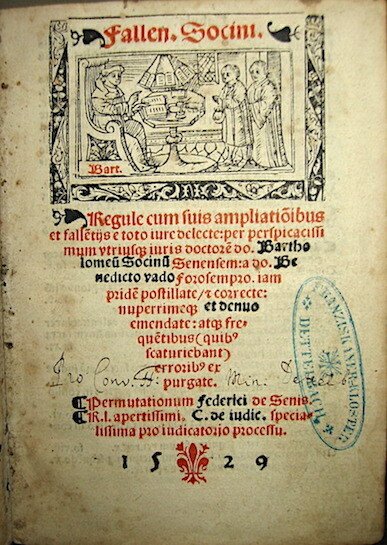 Fallen. Socini.
Bart.
Regule cum suis ampliatiõibus
et fallẽtijs e toto iure delecte: per perspicacissi
mum vtriusqꝫ iuris doctorẽ do. Bartho
lomeũ Socinũ Senensem: a do. Be
nedicto vado Forosempro. iam
pridẽ postillate / ⁊ correcte:
nuperrimeqꝫ et denuo
emendate: atqꝫ fre
quẽtibus (quibꝰ
scaturiebant)
erroribꝰ ex
purgate.
Pro Conv. Min.
¶ Permutationum federici de Senis.
¶ R.l. apertissimi. C. de iudic. specia
lissima pro iudicatorio processu.
1529
DETTELBACH